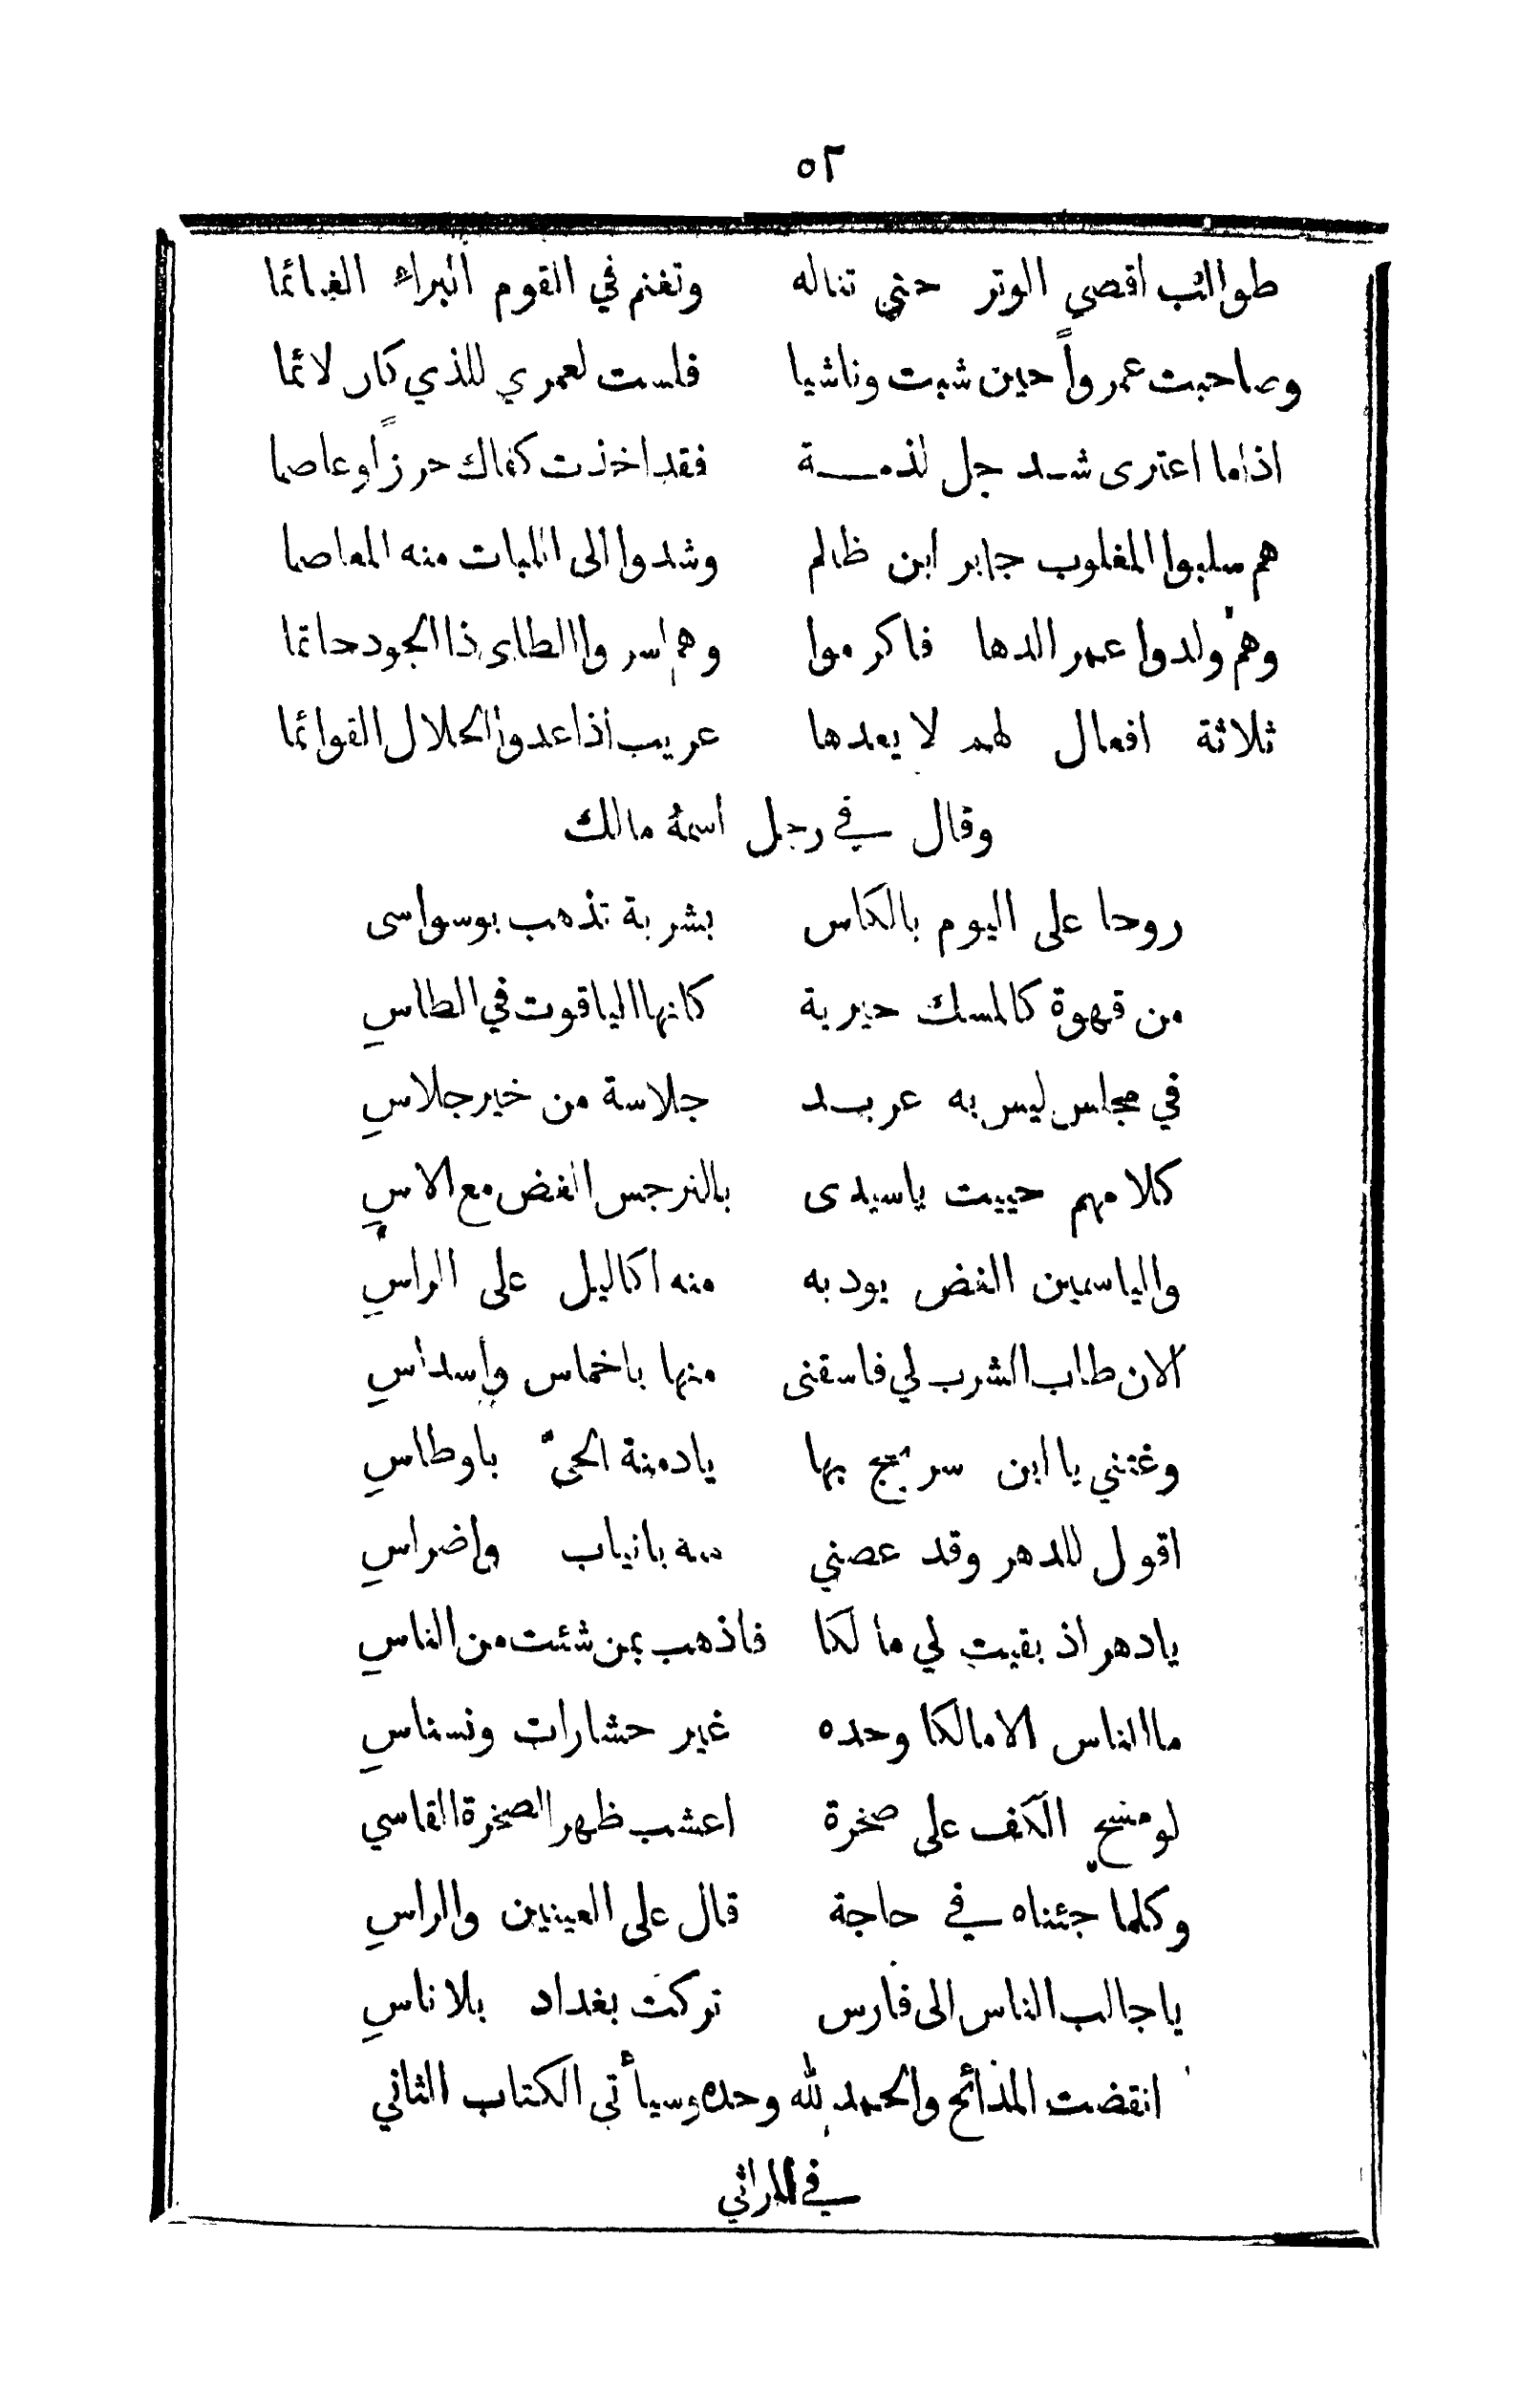 ٥٢
طوالب اقصى الوتر حتى تناله وتغنم في القوم البراء الغنائما
وصاحبت عمرواً حين شبت وناشيا فلست لعمري للذي كان لائما
اذا ما اعترى شد حبل لذمة فقد اخذت كفاك حرزاً وعاصما
هم سلبوا المغلوب جابر ابن ظالم وشدوا الى اللبات منه المعاصما
وهم ولدوا عمر الدها فاكرموا وهم اسروا الطاى ذا الجود حاتما
ثلاثة افعال لهم لا يعدها عريب اذا عدوا الحلال القوائما
وقال في رجل اسمهُ مالك
روحا على اليوم بالكاس بشربة تذهب بوسواسى
من قهوة كالمسك حيرية كانها الياقوت في الطاسِ
في مجلس ليس به عربد جلاسة من خير جلاسِ
كلامهم حييت ياسيدى بالنرجس الغض مع الاسِ
والياسمين الغض يودبه منه اكاليل على الراسِ
الان طاب الشرب لي فاسقنى منها باخماس واسداسِ
وغنني يا ابن سريج بها يادمنة الحي باوطاسِ
اقول للدهر وقد عصني منه بانياب واضراسِ
يادهر اذ بقيت لي مالكا فاذهب بمن شئت من الناسِ
ما الناس الا مالكا وحده غير حشارات ونسناسِ
لو مسح الكف على صخرة اعشب ظهر الصخرة القاسي
وكلما جئناه في حاجة قال على العينين والراسِ
يا جالب الناس الى فارس تركت بغداد بلا ناسِ
انقضت المدائح والحمد لله وحده وسيأتي الكتاب الثاني
في المراثي